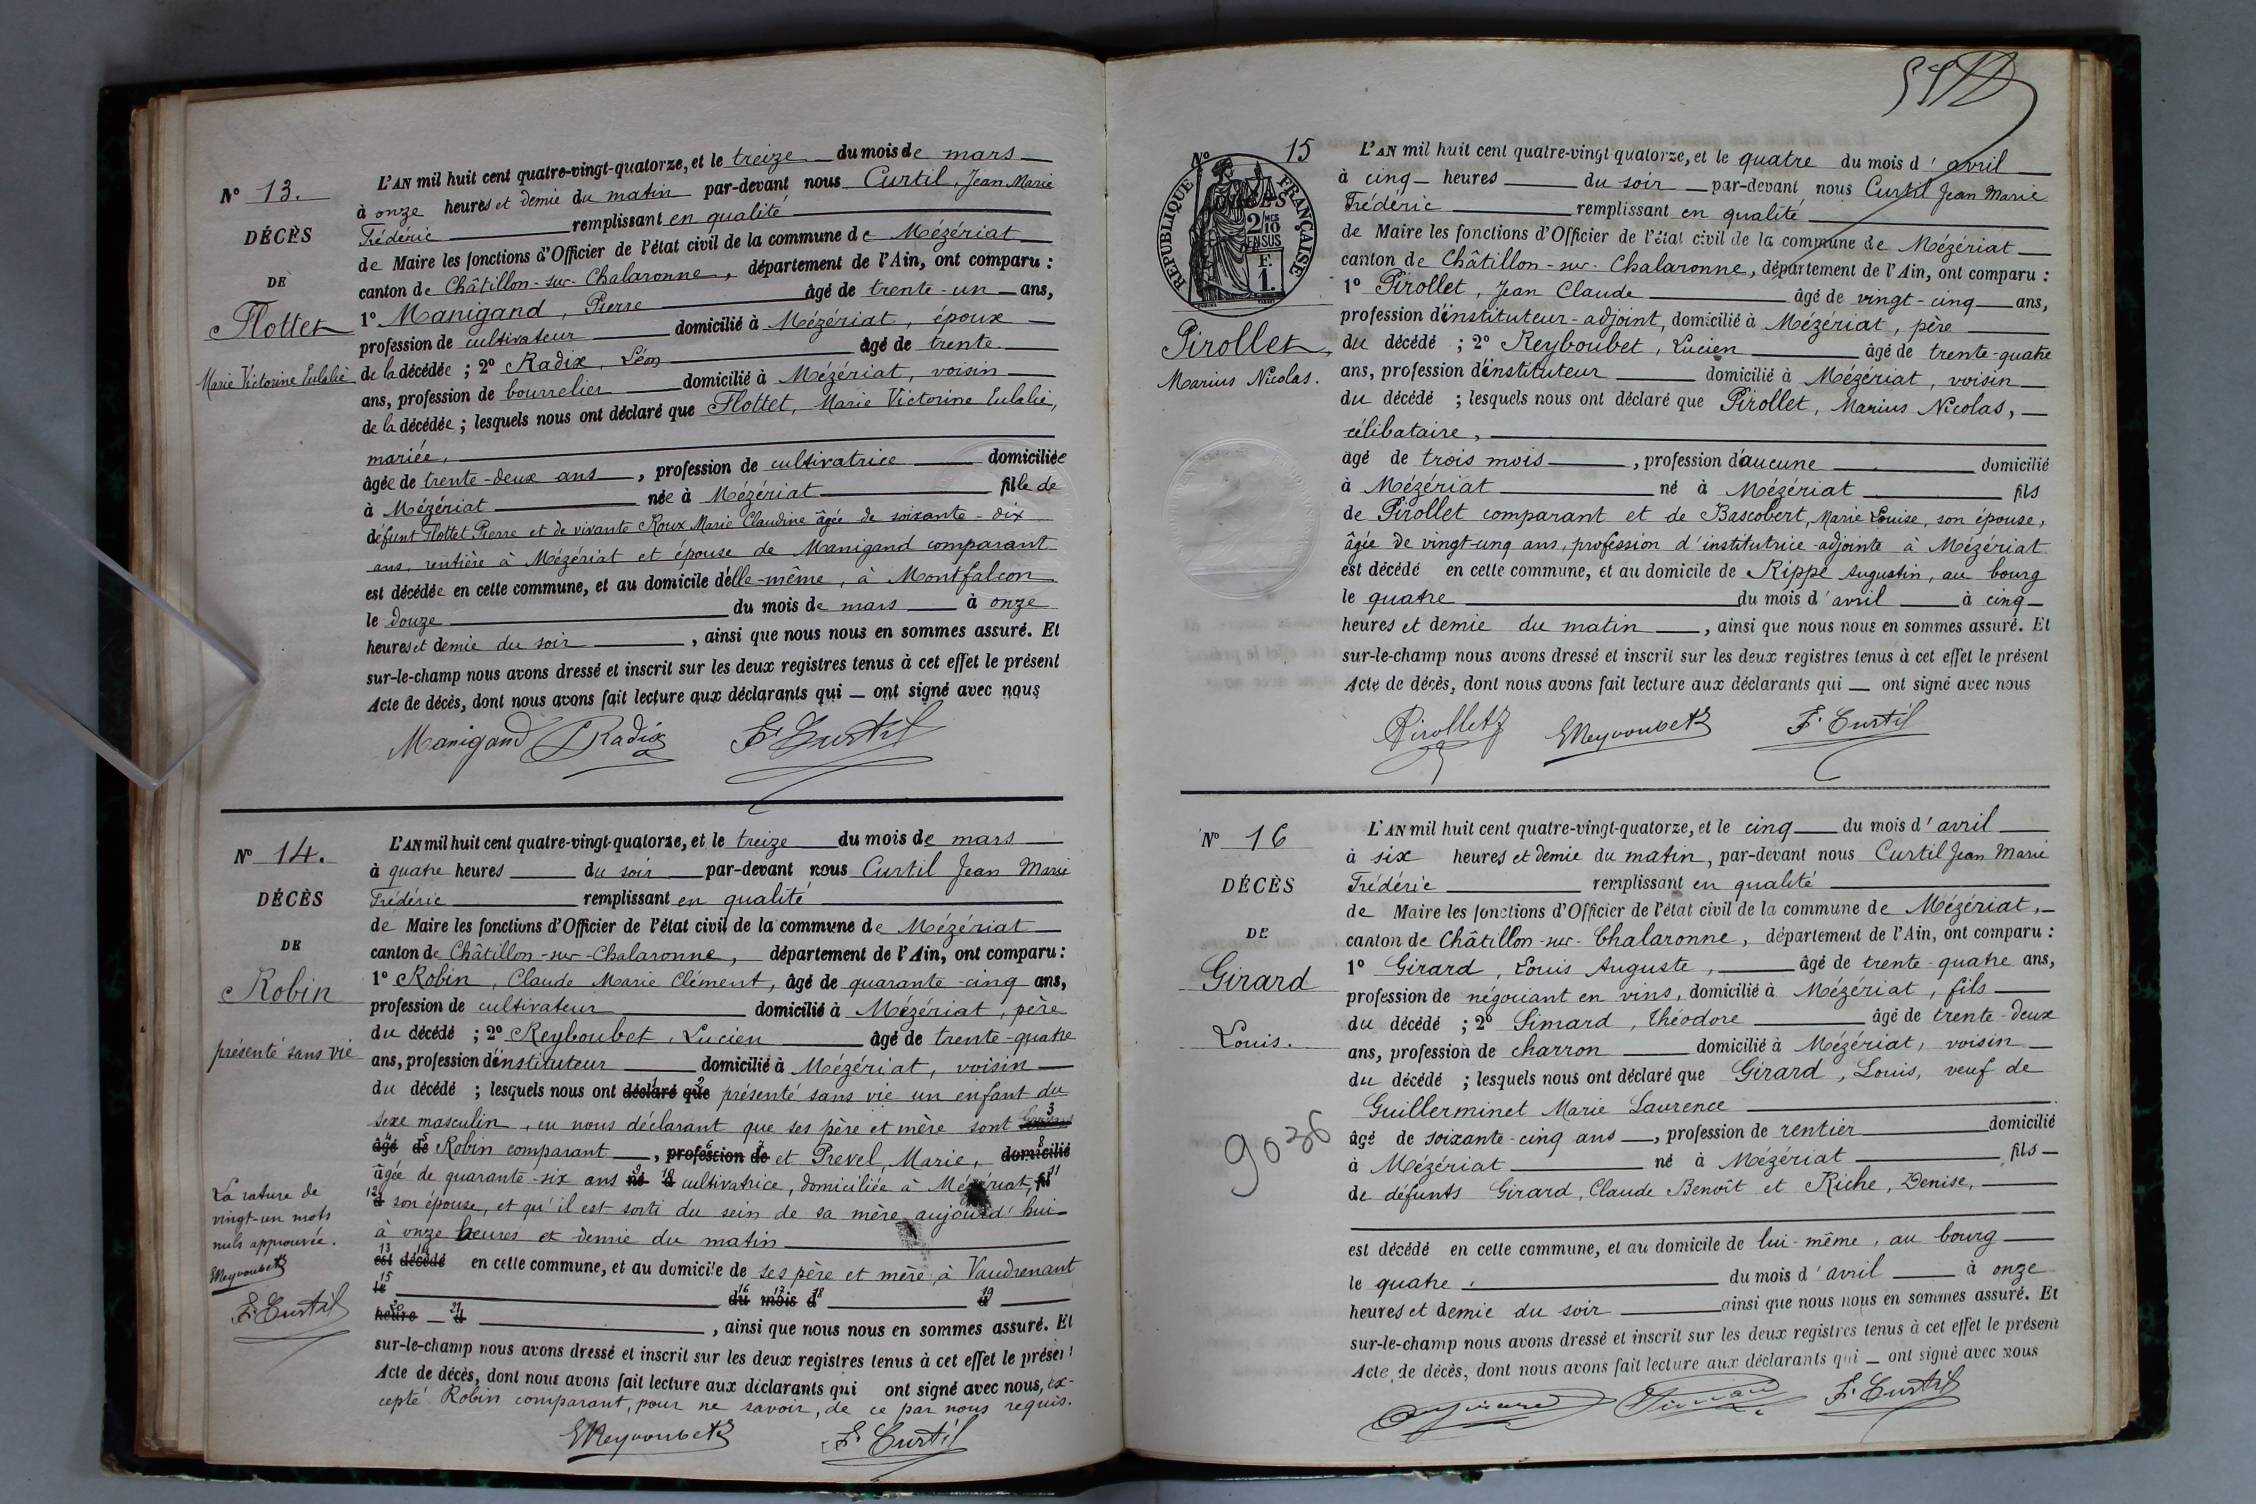 N° 13.
DÉCÈS
DE
Flottet
Marie Victorine Eulalie
L'AN mil huit cent quatre-vingt-quatorze, et le treize du mois de mars
à onze heures et demie du matin par-devant nous Curtil, Jean Marie
Frédéric remplissant en qualité
de Maire les fonctions d'Officier de l'état civil de la commune de Mézériat
canton de Châtillon-sur-Chalaronne, département de l'Ain, ont comparu :
1° Manigand, Pierre âgé de trente-un ans,
profession de cultivateur domicilié à Mézériat, époux
de la décédée ; 2° Radix, Léon âgé de trente
ans, profession de bourrelier domicilié à Mézériat, voisin
de la décédée ; lesquels nous ont déclaré que Flottet, Marie Victorine Eulalie,
mariée,
âgée de trente-deux ans, profession de cultivatrice domiciliée
à Mézériat née à Mézériat fille de
défunt Flottet Pierre et de vivante Roux Marie Claudine âgée de soixante-dix
ans, rentière à Mézériat et épouse de Manigand comparant
est décédée en cette commune, et au domicile d'elle-même, à Montfalcon
le douze du mois de mars à onze
heures et demie du soir, ainsi que nous nous en sommes assuré. Et
sur-le-champ nous avons dressé et inscrit sur les deux registres tenus à cet effet le présent
Acte de décès, dont nous avons fait lecture aux déclarants qui ont signé avec nous
Manigand L Radix F. Curtil
N° 14.
DÉCÈS
DE
Robin
présenté sans vie
La rature de
vingt-un mots
nuls approuvée.
LReyboubet
F. Curtil
L'AN mil huit cent quatre-vingt-quatorze, et le treize du mois de mars
à quatre heures du soir par-devant nous Curtil Jean Marie
Frédéric remplissant en qualité
de Maire les fonctions d'Officier de l'état civil de la commune de Mézériat
canton de Châtillon-sur-Chalaronne, département de l'Ain, ont comparu :
1° Robin, Claude Marie Clément, âgé de quarante-cinq ans,
profession de cultivateur domicilié à Mézériat, père
du décédé ; 2° Reyboubet, Lucien âgé de trente-quatre
ans, profession d'instituteur domicilié à Mézériat, voisin
du décédé ; lesquels nous ont déclaré que présenté sans vie un enfant du
sexe masculin, en nous déclarant que ses père et mère sont
âgé de Robin comparant, profession de et Prevel, Marie, domicilié
âgée de quarante-six ans né à cultivatrice, domiciliée à Mézériat, fil
d son épouse, et qu'il est sorti du sein de sa mère aujourd'hui
à onze heures et demie du matin
est décédé en cette commune, et au domicile de ses père et mère, à Vaudrenant
le du mois d à
heure d, ainsi que nous nous en sommes assuré. Et
sur-le-champ nous avons dressé et inscrit sur les deux registres tenus à cet effet le présent
Acte de décès, dont nous avons fait lecture aux déclarants qui ont signé avec nous, ex-
cepté Robin comparant, pour ne savoir, de ce par nous requis.
LReyboubet F. Curtil
N° 15
RÉPUBLIQUE FRANÇAISE
2/10 EN SUS
F. 1.
Pirollet,
Marius Nicolas.
L'AN mil huit cent quatre-vingt-quatorze, et le quatre du mois d'avril
à cinq heures du soir par-devant nous Curtil Jean Marie
Frédéric remplissant en qualité
de Maire les fonctions d'Officier de l'état civil de la commune de Mézériat
canton de Châtillon-sur-Chalaronne, département de l'Ain, ont comparu :
1° Pirollet, Jean Claude âgé de vingt-cinq ans,
profession d'instituteur-adjoint, domicilié à Mézériat, père
du décédé ; 2° Reyboubet, Lucien âgé de trente-quatre
ans, profession d'instituteur domicilié à Mézériat, voisin
du décédé ; lesquels nous ont déclaré que Pirollet, Marius Nicolas,
célibataire,
âgé de trois mois, profession d'aucune domicilié
à Mézériat né à Mézériat fils
de Pirollet comparant et de Bascobert, Marie Louise, son épouse,
âgée de vingt-cinq ans, profession d'institutrice-adjointe à Mézériat
est décédé en cette commune, et au domicile de Rippe Augustin, au bourg
le quatre du mois d'avril à cinq
heures et demie du matin, ainsi que nous nous en sommes assuré. Et
sur-le-champ nous avons dressé et inscrit sur les deux registres tenus à cet effet le présent
Acte de décès, dont nous avons fait lecture aux déclarants qui ont signé avec nous
Pirollet LReyboubet F. Curtil
N° 16
DÉCÈS
DE
Girard
Louis.
9036
L'AN mil huit cent quatre-vingt-quatorze, et le cinq du mois d'avril
à six heures et demie du matin, par-devant nous Curtil Jean Marie
Frédéric remplissant en qualité
de Maire les fonctions d'Officier de l'état civil de la commune de Mézériat,
canton de Châtillon-sur-Chalaronne, département de l'Ain, ont comparu :
1° Girard, Louis Auguste, âgé de trente-quatre ans,
profession de négociant en vins, domicilié à Mézériat, fils
du décédé ; 2° Simard, Théodore âgé de trente-deux
ans, profession de charron domicilié à Mézériat, voisin
du décédé ; lesquels nous ont déclaré que Girard, Louis, veuf de
Guillerminet Marie Laurence
âgé de soixante-cinq ans, profession de rentier domicilié
à Mézériat né à Mézériat fils
de défunts Girard, Claude Benoît et Riche, Denise,
est décédé en cette commune, et au domicile de lui-même, au bourg
le quatre du mois d'avril à onze
heures et demie du soir ainsi que nous nous en sommes assuré. Et
sur-le-champ nous avons dressé et inscrit sur les deux registres tenus à cet effet le présent
Acte de décès, dont nous avons fait lecture aux déclarants qui ont signé avec nous
F. Curtil